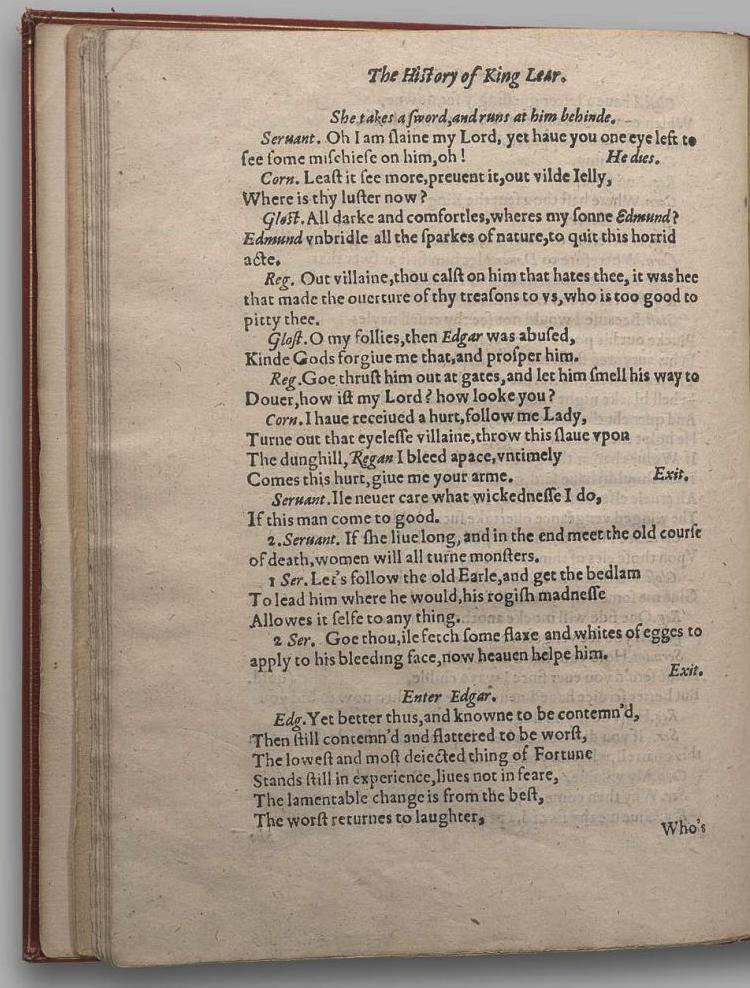 The Hiſtory of King Lear.
She takes a ſword,and runs at him behinde.
Seruant. Oh I am ſlaine my Lord, yet haue you one eye left to
ſee ſome miſchiefe on him,oh! He dies.
Corn. Leaſt it ſee more,preuent it,out vilde Ielly,
Where is thy luſter now?
Gloſt. All darke and comfortles,wheres my ſonne Edmund?
Edmund vnbridle all the ſparkes of nature,to quit this horrid
acte.
Reg. Out villaine,thou calſt on him that hates thee, it was hee
that made the ouerture of thy treaſons to vs,who is too good to
pitty thee.
Gloſt. O my follies,then Edgar was abuſed,
Kinde Gods forgiue me that,and proſper him.
Reg. Goe thruſt him out at gates,and let him ſmell his way to
Douer,how iſt my Lord? how looke you?
Corn. I haue receiued a hurt,follow me Lady,
Turne out that eyeleſſe villaine,throw this ſlaue vpon
The dunghill, Regan I bleed apace,vntimely
Comes this hurt,giue me your arme. Exit.
Seruant. Ile neuer care what wickedneſſe I do,
If this man come to good.
2.Seruant. If ſhe liue long, and in the end meet the old courſe
of death,women will all turne monſters.
1 Ser. Let's follow the old Earle,and get the bedlam
To lead him where he would,his rogiſh madneſſe
Allowes it ſelfe to any thing.
2 Ser. Goe thou,ile fetch ſome flaxe and whites of egges to
apply to his bleeding face,now heauen helpe him.
Exit.
Enter Edgar.
Edg. Yet better thus,and knowne to be contemn'd,
Then ſtill contemn'd and flattered to be worſt,
The loweſt and moſt deiected thing of Fortune
Stands ſtill in experience,liues not in feare,
The lamentable change is from the beſt,
The worſt returnes to laughter,
Who's